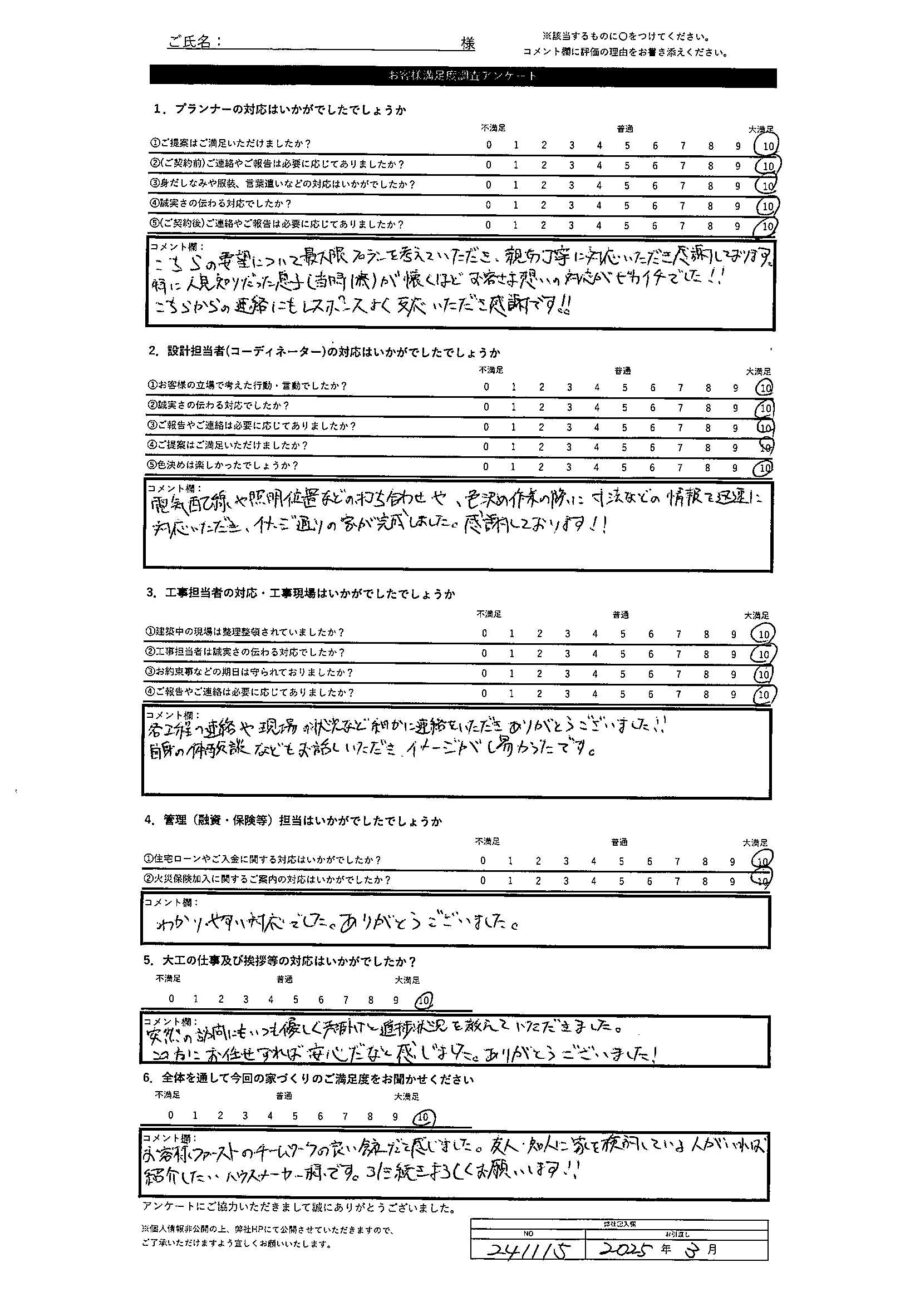 ご氏名： 様
※該当するものに〇をつけてください。
コメント欄に評価の理由をお書き添えください。
お客様満足度調査アンケート
1．プランナーの対応はいかがでしたでしょうか
不満足 普通 大満足
①ご提案はご満足いただけましたか？ 0 1 2 3 4 5 6 7 8 9 10
②(ご契約前)ご連絡やご報告は必要に応じてありましたか？ 0 1 2 3 4 5 6 7 8 9 10
③身だしなみや服装、言葉遣いなどの対応はいかがでしたか？ 0 1 2 3 4 5 6 7 8 9 10
④誠実さの伝わる対応でしたか？ 0 1 2 3 4 5 6 7 8 9 10
⑤(ご契約後)ご連絡やご報告は必要に応じてありましたか？ 0 1 2 3 4 5 6 7 8 9 10
コメント欄：
こちらの要望について最大限プランを考えていただき、親切丁寧に対応いただき感謝しております。
特に人見知りだった息子(当時1歳)が懐くほどお客さま想いの対応がピカイチでした!!
こちらからの連絡にもレスポンスよく反応いただき感謝です!!
2．設計担当者(コーディネーター)の対応はいかがでしたでしょうか
不満足 普通 大満足
①お客様の立場で考えた行動・言動でしたか？ 0 1 2 3 4 5 6 7 8 9 10
②誠実さの伝わる対応でしたか？ 0 1 2 3 4 5 6 7 8 9 10
③ご報告やご連絡は必要に応じてありましたか？ 0 1 2 3 4 5 6 7 8 9 10
④ご提案はご満足いただけましたか？ 0 1 2 3 4 5 6 7 8 9 10
⑤色決めは楽しかったでしょうか？ 0 1 2 3 4 5 6 7 8 9 10
コメント欄：
電気配線や照明位置などの打ち合わせや、色決め作業の際に寸法などの情報を迅速に
対応いただき、イメージ通りの家が完成しました。感謝しております!!
3．工事担当者の対応・工事現場はいかがでしたでしょうか
不満足 普通 大満足
①建築中の現場は整理整頓されていましたか？ 0 1 2 3 4 5 6 7 8 9 10
②工事担当者は誠実さの伝わる対応でしたか？ 0 1 2 3 4 5 6 7 8 9 10
③お約束事などの期日は守られておりましたか？ 0 1 2 3 4 5 6 7 8 9 10
④ご報告やご連絡は必要に応じてありましたか？ 0 1 2 3 4 5 6 7 8 9 10
コメント欄：
各工程の連絡や現場の状況など細かに連絡をいただきありがとうございました!!
自身の体験談などもお話しいただき、イメージがし易かったです。
4．管理（融資・保険等）担当はいかがでしたでしょうか
不満足 普通 大満足
①住宅ローンやご入金に関する対応はいかがでしたか？ 0 1 2 3 4 5 6 7 8 9 10
②火災保険加入に関するご案内の対応はいかがでしたか？ 0 1 2 3 4 5 6 7 8 9 10
コメント欄：
わかりやすい対応でした。ありがとうございました。
5．大工の仕事及び挨拶等の対応はいかがでしたか？
不満足 普通 大満足
0 1 2 3 4 5 6 7 8 9 10
コメント欄：
突然の訪問にもいつも優しく声掛けと進捗状況を教えていただきました。
この方にお任せすれば安心だなと感じました。ありがとうございました!
6．全体を通して今回の家づくりのご満足度をお聞かせください
不満足 普通 大満足
0 1 2 3 4 5 6 7 8 9 10
コメント欄：
お客様ファーストのチームワークの良い会社だと感じました。友人・知人に家を検討している人がいれば
紹介したいハウスメーカー様です。引き続きよろしくお願いします!!
アンケートにご協力いただきまして誠にありがとうございました。
※個人情報非公開の上、弊社HPにて公開させていただきますので、
ご了承いただけますよう宜しくお願いいたします。
弊社記入欄
NO お引渡し
241115 2025 年 3 月